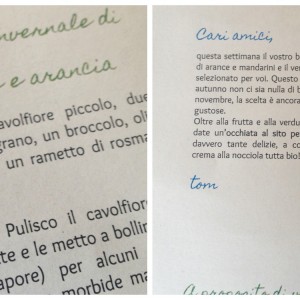 invernale di
e arancia
cavolfiore piccolo, due
grano, un broccolo, oli
un rametto di rosma
Pulisco il cavolfiore
tte e le metto a bollire
apore) per alcuni
morbide ma
Cari amici,
questa settimana il vostro b
di arance e mandarini e il ver
selezionato per voi. Questo
autunno non ci sia nulla di b
novembre, la scelta è ancora
gustose.
Oltre alla frutta e alla verdu
date un'occhiata al sito pe
davvero tante delizie, a co
crema alla nocciola tutta bio!
tom
A proposito di